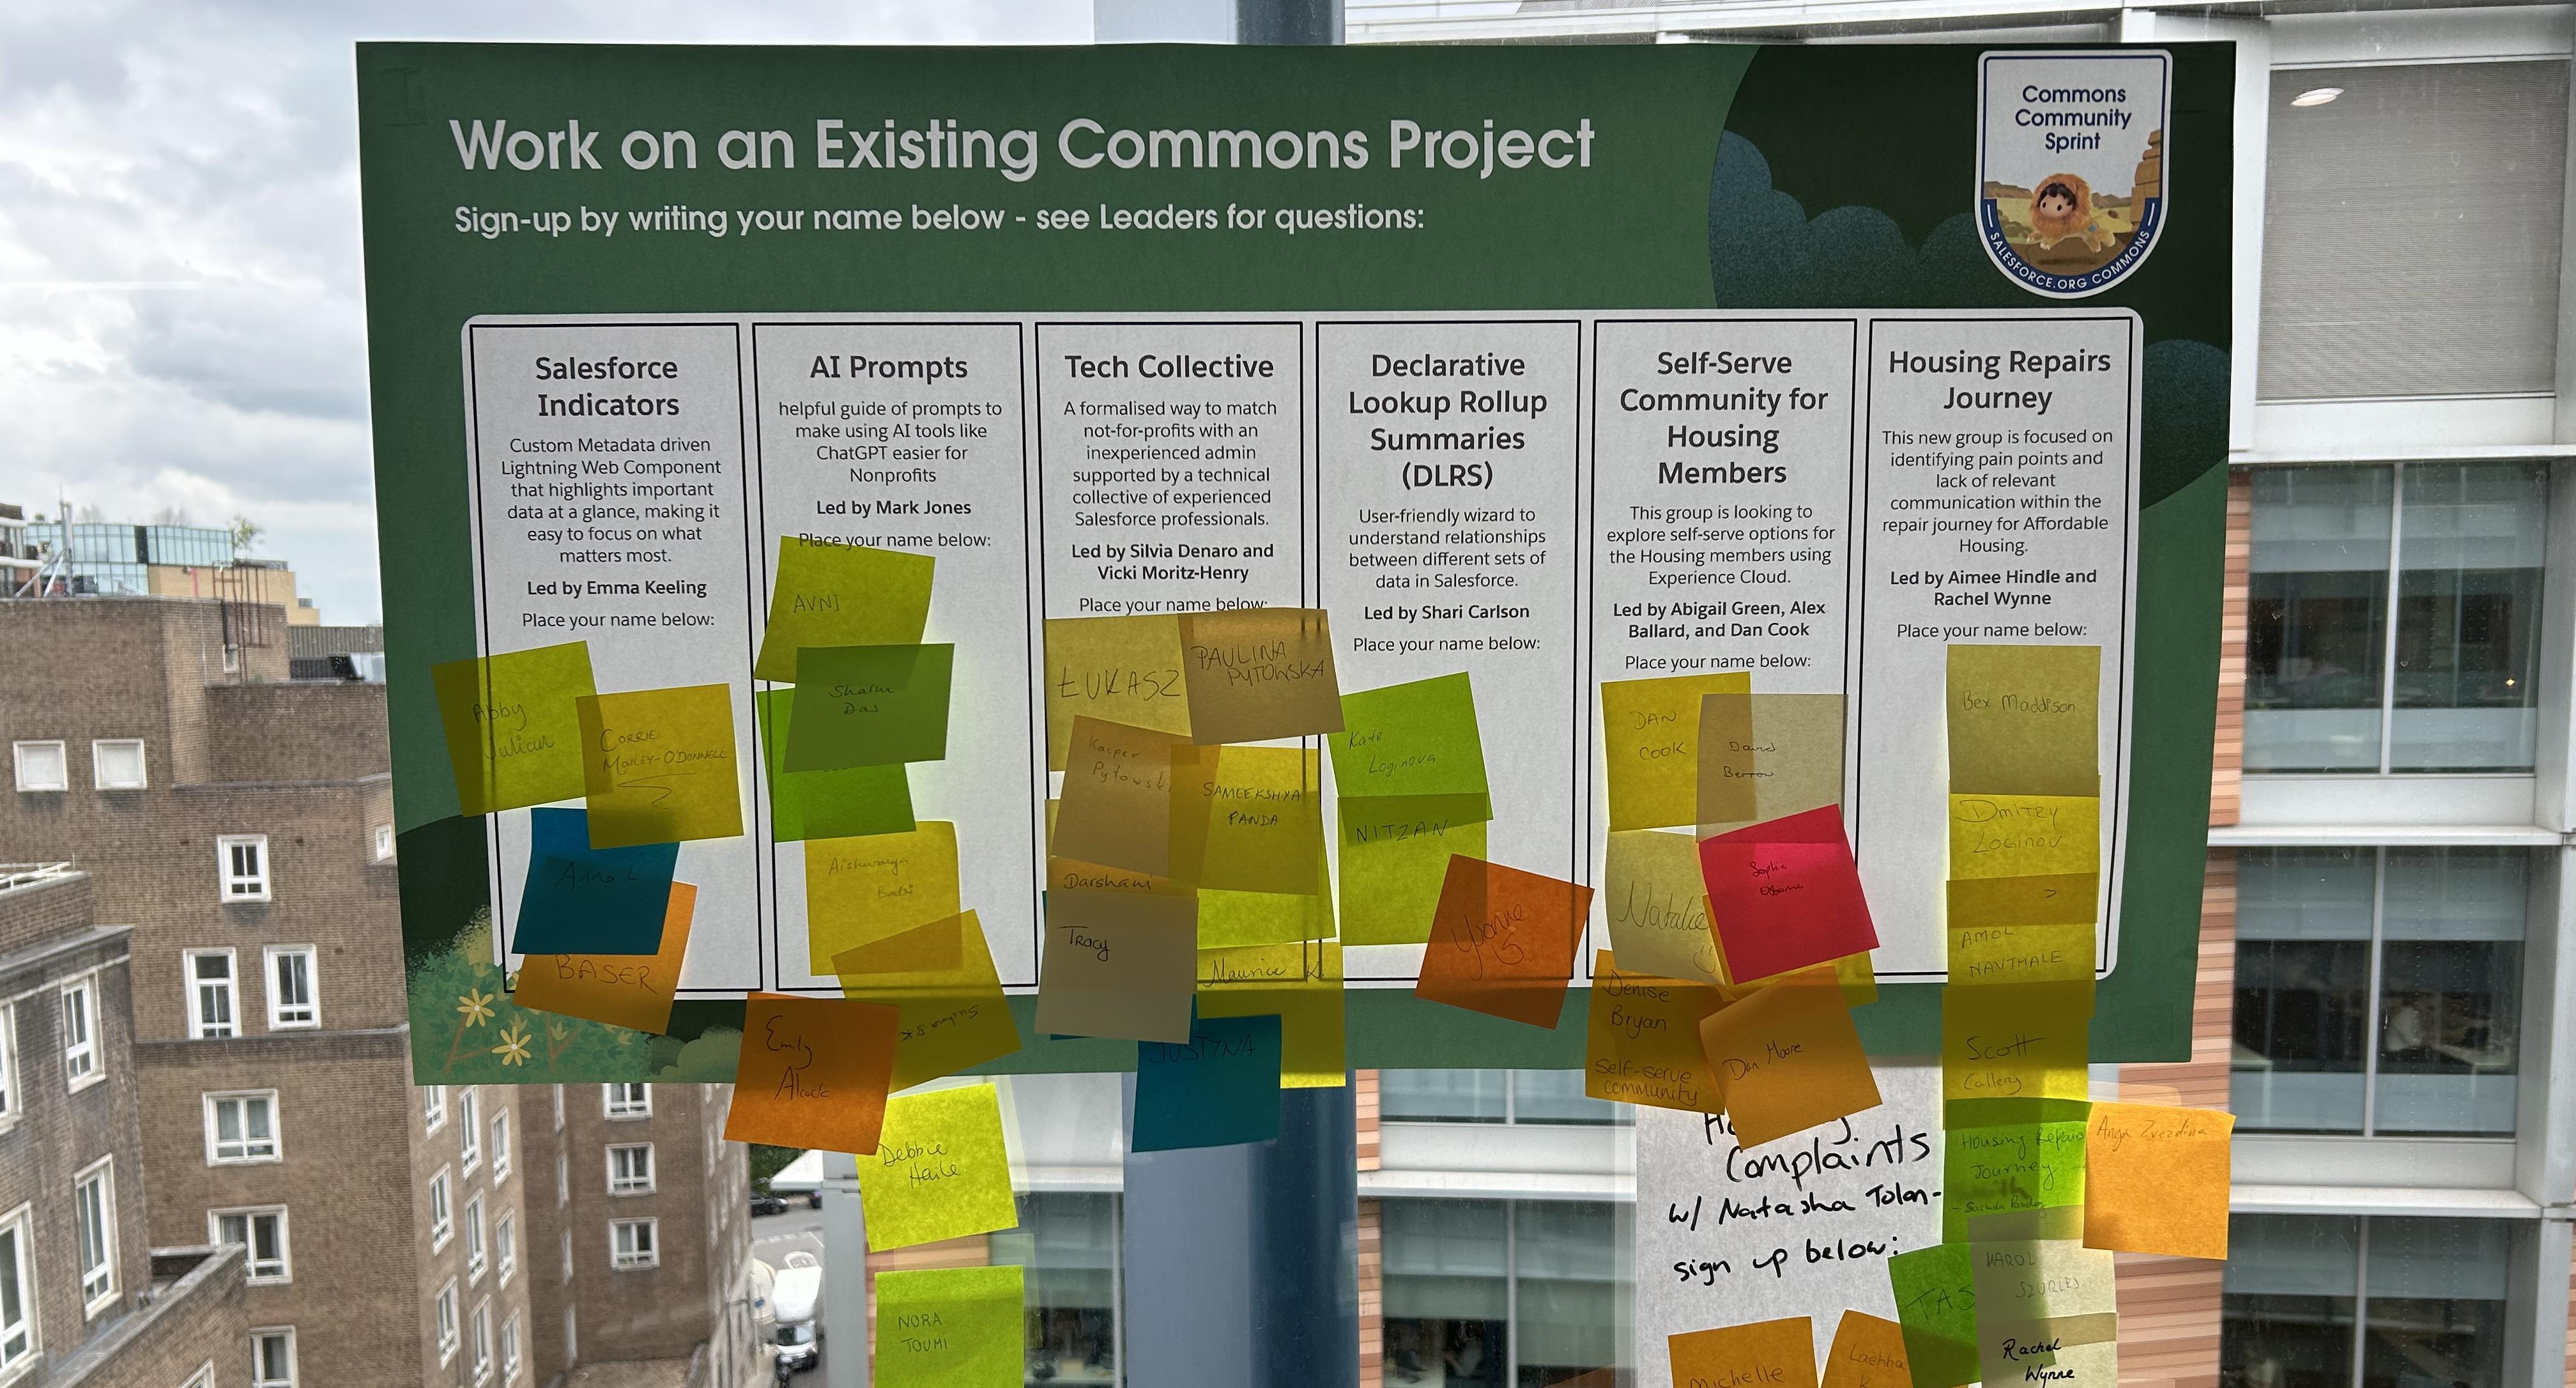 Work on an Existing Commons Project
Sign-up by writing your name below - see Leaders for questions:
Commons
Community
Sprint
SALESFORCE.ORG COMMONS
Salesforce
Indicators
Custom Metadata driven
Lightning Web Component
that highlights important
data at a glance, making it
easy to focus on what
matters most.
Led by Emma Keeling
Place your name below:
Abby
Julian
CORRIE
MOLLEY-O'DONNELL
Anna L
BASER
AI Prompts
helpful guide of prompts to
make using AI tools like
ChatGPT easier for
Nonprofits
Led by Mark Jones
Place your name below:
AVNI
Sharm
Das
Aishwarya
Emily
Alcock
Debbie
Haile
NORA
TOUMI
Tech Collective
A formalised way to match
not-for-profits with an
inexperienced admin
supported by a technical
collective of experienced
Salesforce professionals.
Led by Silvia Denaro and
Vicki Moritz-Henry
Place your name below:
ŁUKASZ
PAULINA
PYTOWSKA
Kacper
Pytowski
SAMEEKSHYA
PANDA
Darshani
Tracy
Maurice K
JUSTYNA
Declarative
Lookup Rollup
Summaries
(DLRS)
User-friendly wizard to
understand relationships
between different sets of
data in Salesforce.
Led by Shari Carlson
Place your name below:
Kate
Loginova
NITZAN
Yvonne
Self-Serve
Community for
Housing
Members
This group is looking to
explore self-serve options for
the Housing members using
Experience Cloud.
Led by Abigail Green, Alex
Ballard, and Dan Cook
Place your name below:
DAN
COOK
David
Berrow
Natalie
Sophie
Osborne
Denise
Bryan
Self-serve
community
Dan Moore
Complaints
w/ Natasha Tolan-
sign up below:
Michelle
Laehha
K
Housing Repairs
Journey
This new group is focused on
identifying pain points and
lack of relevant
communication within the
repair journey for Affordable
Housing.
Led by Aimee Hindle and
Rachel Wynne
Place your name below:
Bex Maddison
DMITRY
LOGINOV
AMOL
NAVTHALE
Scott
Callery
Housing Repair
Journey
Anya Zvezdina
TAS
KAROL
SZURLES
Rachel
Wynne